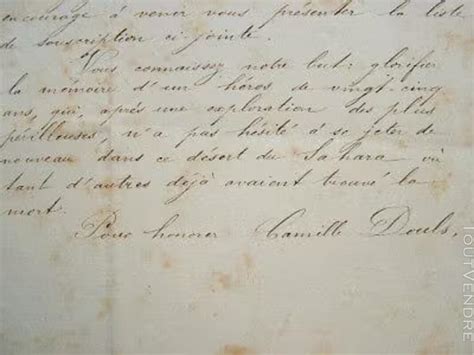 encouragé à venir vous présenter la liste
de souscription ci jointe.
Vous connaissez notre but: glorifier
la mémoire d'un héros de vingt-cinq
ans, qui, après une exploration des plus
périlleuses, n'a pas hésité à se jeter de
nouveau dans ce désert du Sahara où
tant d'autres déjà avaient trouvé la
mort.
Pour honorer Camille Douls,
TOUTVENDRE